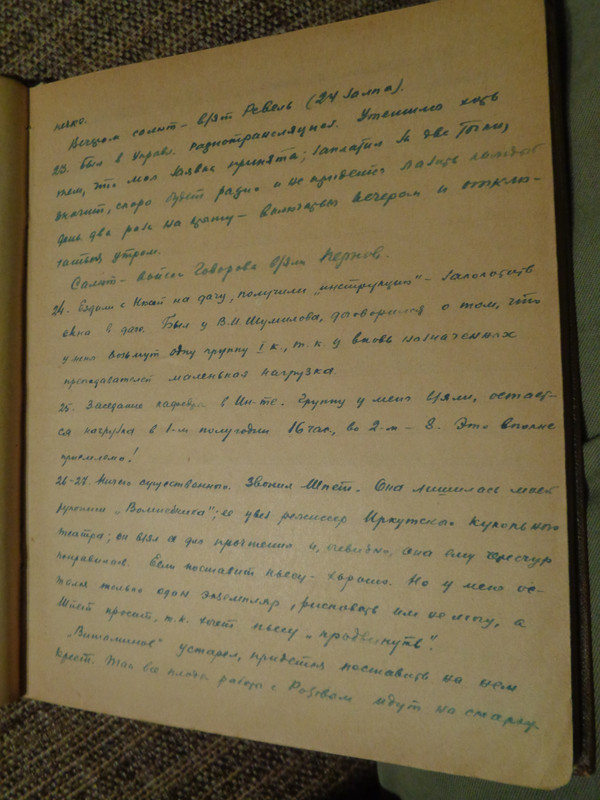 Вечером салют – взят Ревель (24 залпа).
23. Был в Управл. Радиотрансляции. Утешился хоть
тем, что моя заявка принята; заплатил за две точки,
значит, скоро будет радио и не придется лазить каждый
день два раза на крышу – включаться вечером и отклю-
чаться утром.
Салют – войска Говорова взяли Пернов.
24. Ездили с на дачу, получили „инструкцию" – заколотить
окна в даче. Был у В.И. Шумилова, договорился о том, что
у меня возьмут одну группу I к., т.к. у вновь назначенных
преподавателей маленькая нагрузка.
25. Заседание кафедры в Ин-те. Группу у меня взяли, остает-
ся нагрузка в 1-м полугодии 16 час., во 2-м – 8. Это вполне
приемлемо!
26-27. Ничего существенного. Звонила Шпет. Она лишилась моей
рукописи „Волшебника"; ее увез режиссер Иркутского Кукольного
театра; он взял для прочтения и, очевидно, она ему чересчур
понравилась. Если поставит пьесу – хорошо. Но у меня ос-
тался только один экземпляр, рисковать им не могу, а
Шпет просит, т.к. хочет пьесу „продвинуть".
устарел, придется поставить на нем
крест. Так все плоды работы с Розовом идут на смарку.